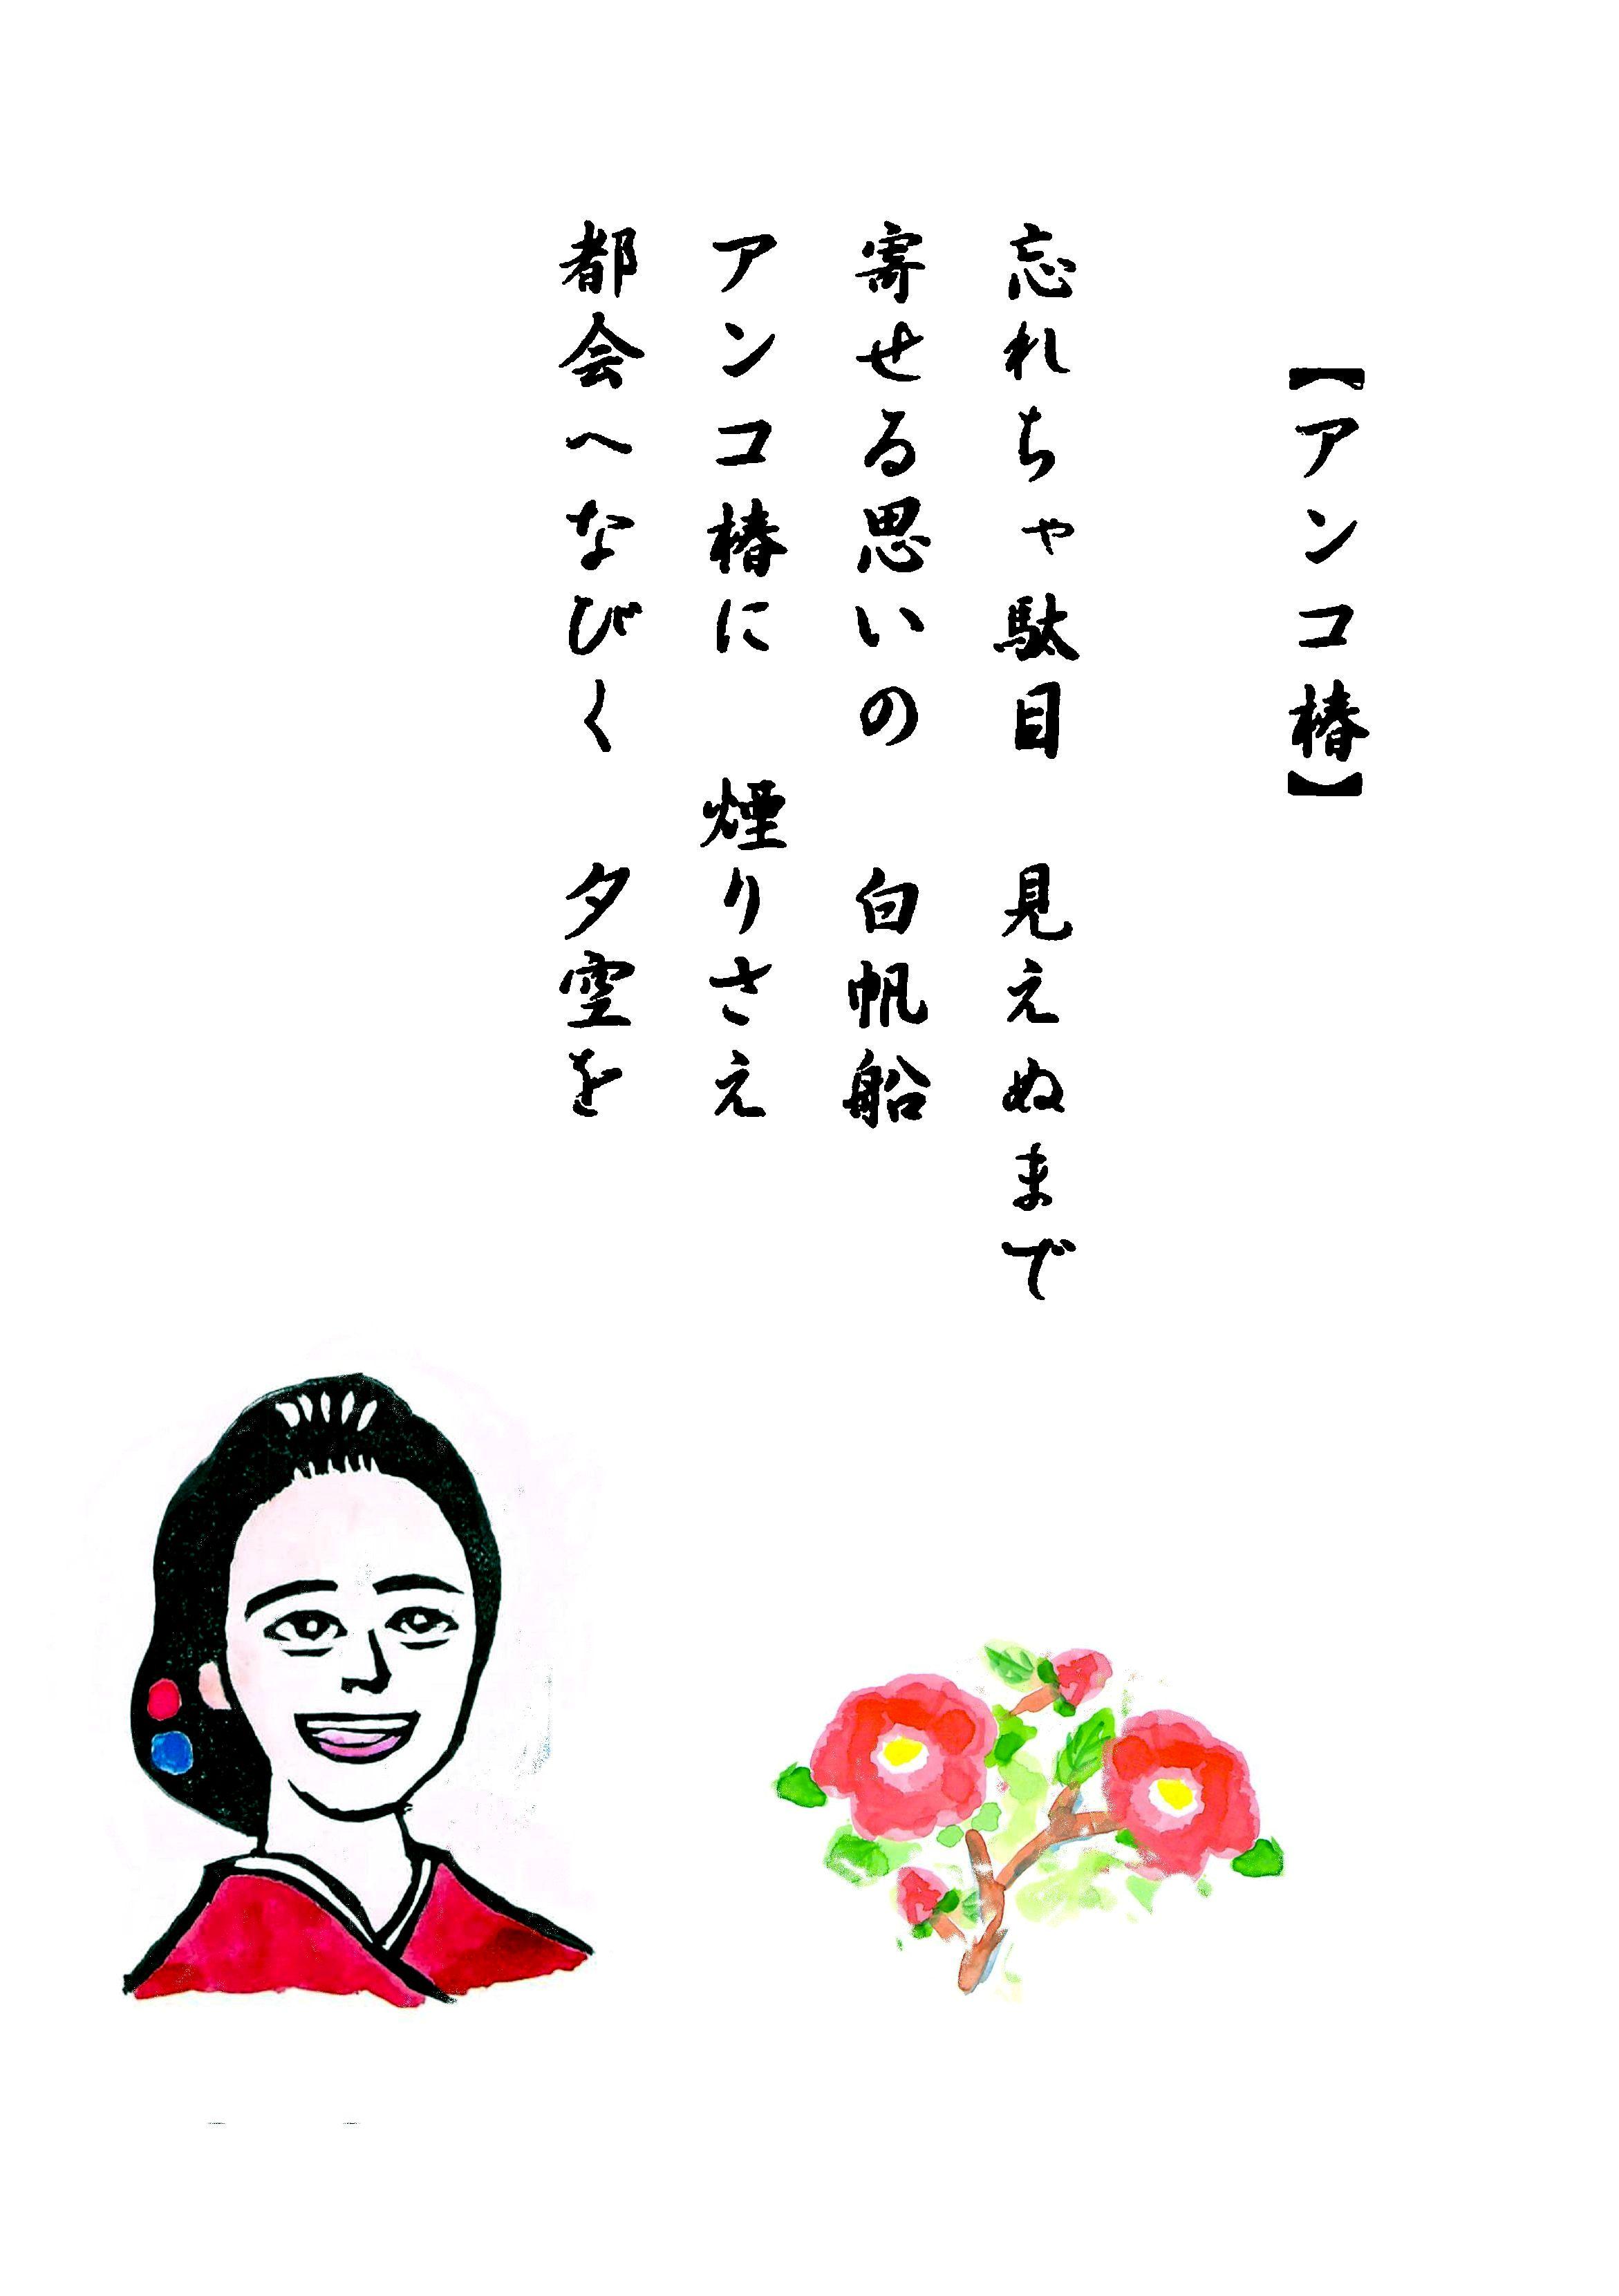 【アンコ椿】
忘れちゃ駄目　見えぬまで
寄せる思いの　白帆船
アンコ椿に　煙りさえ
都会へなびく　夕空を